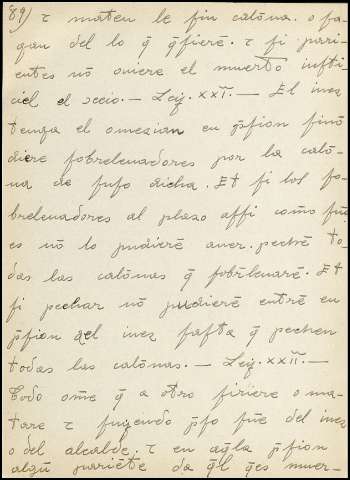 89) τ maten le ſin calōna. o fa-
gan del lo q̄ q̄ſierē. τ ſi pari-
entes nō oviere el muerto iuſti
ciel el xecio. — Leẏ. xxī. — El iuez
tenga el omezian en pſion ſinō
diere ſobreleuadores por la calō-
na de ſuſo dicha. Et ſi los ſo-
breleuadores al plazo aſſi comō fue
es nō lo pudierē aver. pechē to-
das las calōnas q̄ ſobrleuarē. Et
ſi pechar nō pudierē entrē en
pſion del iuez faſta q̄ pechen
todas las calōnas. — Leẏ. xxīī. —
Todo omē q̄ a otro firiere o ma-
tare τ fugendo pſo fue del iuez
o del alcalde. τ en aq̄lla pſion
algū pariēte da q̄l q̄es muer-